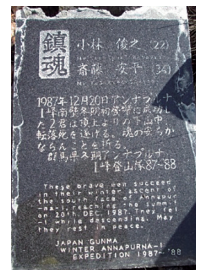 鎮魂
小林 俊之 (22)
斎藤 安平 (34)
1987年12月20日アンナプルナ
1峰南壁冬期初登攀に成功し
た2君は頂上よりの下山中、
転落他を逝ける。魂の安らか
ならんことを祈る。
群馬県冬期アンナプルナ
1峰登山隊87~88
These brave men succeed
in their winter ascent of
the south face of Annapur
na-1, reaching the summit
on 20th. DEC. 1987. They fel
l while descending. May
they rest in peace.
JAPAN GUNMA
WINTER ANNAPURNA-1
EXPEDITION 1987~'88